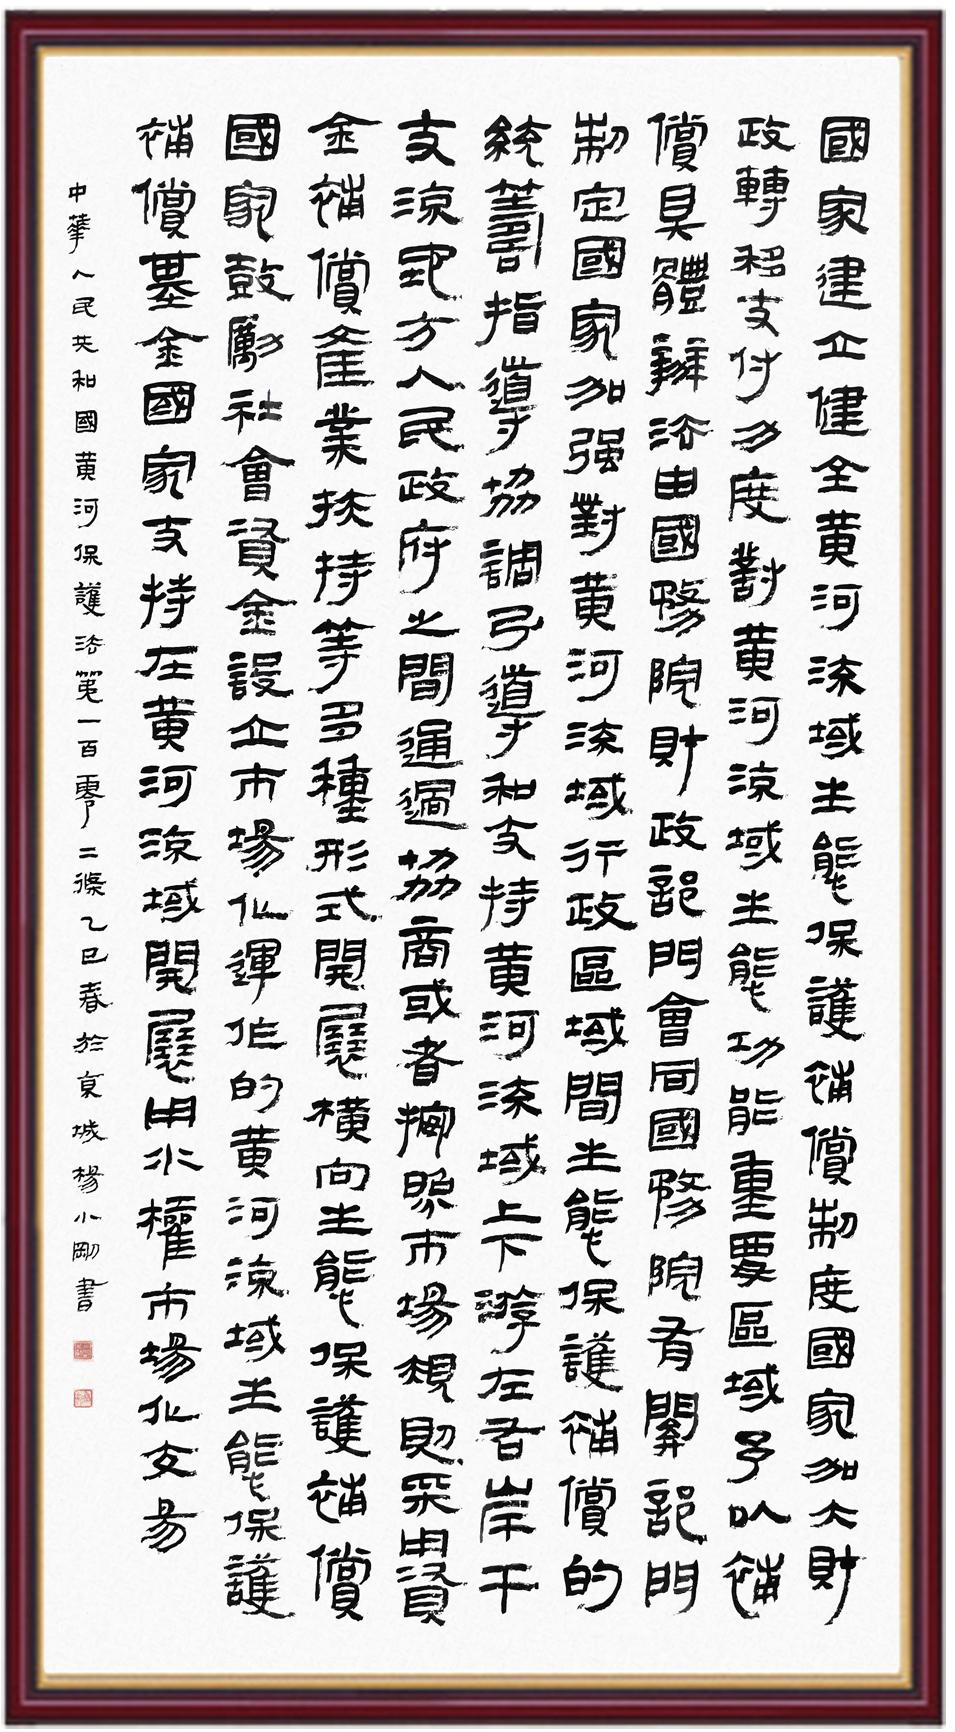 國家建立健全黄河流域生能保護補償制度國家加大財
政轉移支付力度對黄河流域生能功能重要區域予以補
償具體辦法由國務院財政部門會同國務院有關部門
制定國家加强對黄河流域行政區域間生能保護補償的
統籌指導協調引導和支持黄河流域上下游左右岸干
支流地方人民政府之間通過協商或者按照市場規則采用資
金補償產業扶持等多種形式開展橫向生能保護補償
國家鼓勵社會資金設立市場化運作的黄河流域生能保護
補償基金國家支持在黄河流域開展用水權市場化交易
中華人民共和國黄河保護法第一百零二條乙巳春於京城楊小剛書